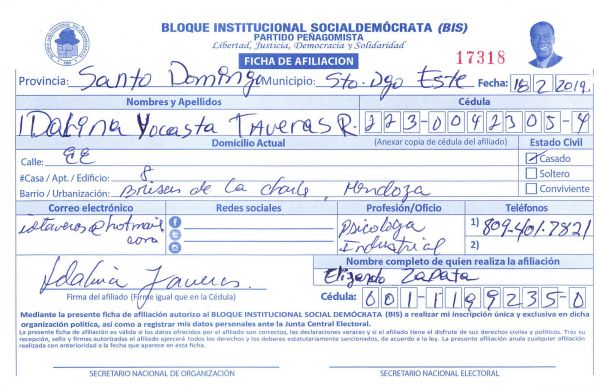 BLOQUE INSTITUCIONAL SOCIALDEMÓCRATA (BIS)
PARTIDO PEÑAGOMISTA
Libertad, Justicia, Democracia y Solidaridad
FICHA DE AFILIACION
17318
Provincia: Santo Domingo Municipio: Sto. Dgo Este Fecha: 18 2 2019
Nombres y Apellidos Cédula
IDALINA Yocasta TAVERAS R. 223-0042305-4
Domicilio Actual (Anexar copia de cédula del afiliado) Estado Civil
Calle: EE Casado
#Casa / Apt. / Edificio: 8 Soltero
Barrio / Urbanización: Brisas de La Mendoza Conviviente
Correo electrónico Redes sociales Profesión/Oficio Teléfonos
iataveras@hotmail Psicologa 1) 809-401-7821
.com Industrial 2)
Idalina Taveras Nombre completo de quien realiza la afiliación
Elizardo Zapata
Firma del afiliado (Firme igual que en la Cédula) Cédula: 001-1199235-0
Mediante la presente ficha de afiliación autorizo al BLOQUE INSTITUCIONAL SOCIAL DEMÓCRATA (BIS) a realizar mi inscripción única y exclusiva en dicha
organización política, así como a registrar mis datos personales ante la Junta Central Electoral.
La presente ficha de afiliación es válida si los datos ofrecidos por el afiliado son correctos, las declaraciones veraces y si el afiliado tiene el disfrute de sus derechos civiles y políticos. Tras su
recepción, sello y firmas autorizadas el afiliado ejercerá todos los derechos y los deberes estatutariamente sancionados, de acuerdo a la ley. La presente afiliación anula cualquier afiliación
realizada con anterioridad a la fecha que aparece en esta ficha.
SECRETARIO NACIONAL DE ORGANIZACIÓN SECRETARIO NACIONAL ELECTORAL